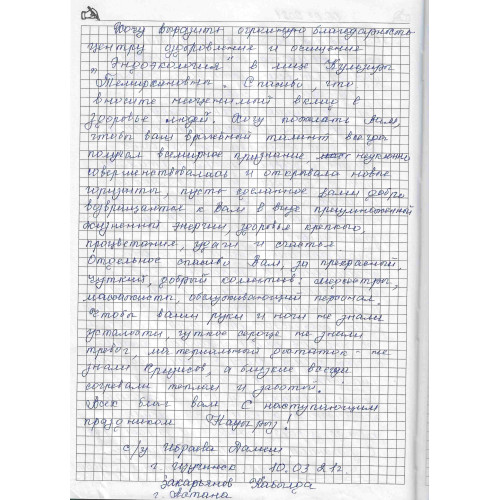 Хочу выразить огромную благодарность
центру оздоровление и очищения
"Эндоэкология" в лице Кульзиры
Темирхановны. Спасибо, что
вносите неоценимый вклад в
здоровье людей. Хочу пожелать Вам,
чтобы ваш врачебный талант всегда
получал всемирное признание неуклонно
совершенствовались и открывала новые
горизонты, пусть сделанное вами добро
возвращаются к Вам в виде преумноженной
жизненной энергии, здоровье крепкого,
процветание, удачи и счастья
Отдельное спасибо Вам, за прекрасной,
чуткий, добрый коллектив: медсестры,
массажисты, обслуживающий персонал.
Чтобы ваши руки и ноги не знали
усталости, чуткое сердце не знали
тревог, материальный достаток - не
знали кризисов, а близкие всегда
согревали теплом и заботой.
Всех благ вам. С наступающим
праздником Наурыз!
с/у Ибраева
г. Щучинск 10.03.21г
Закарьянов
г. Астана